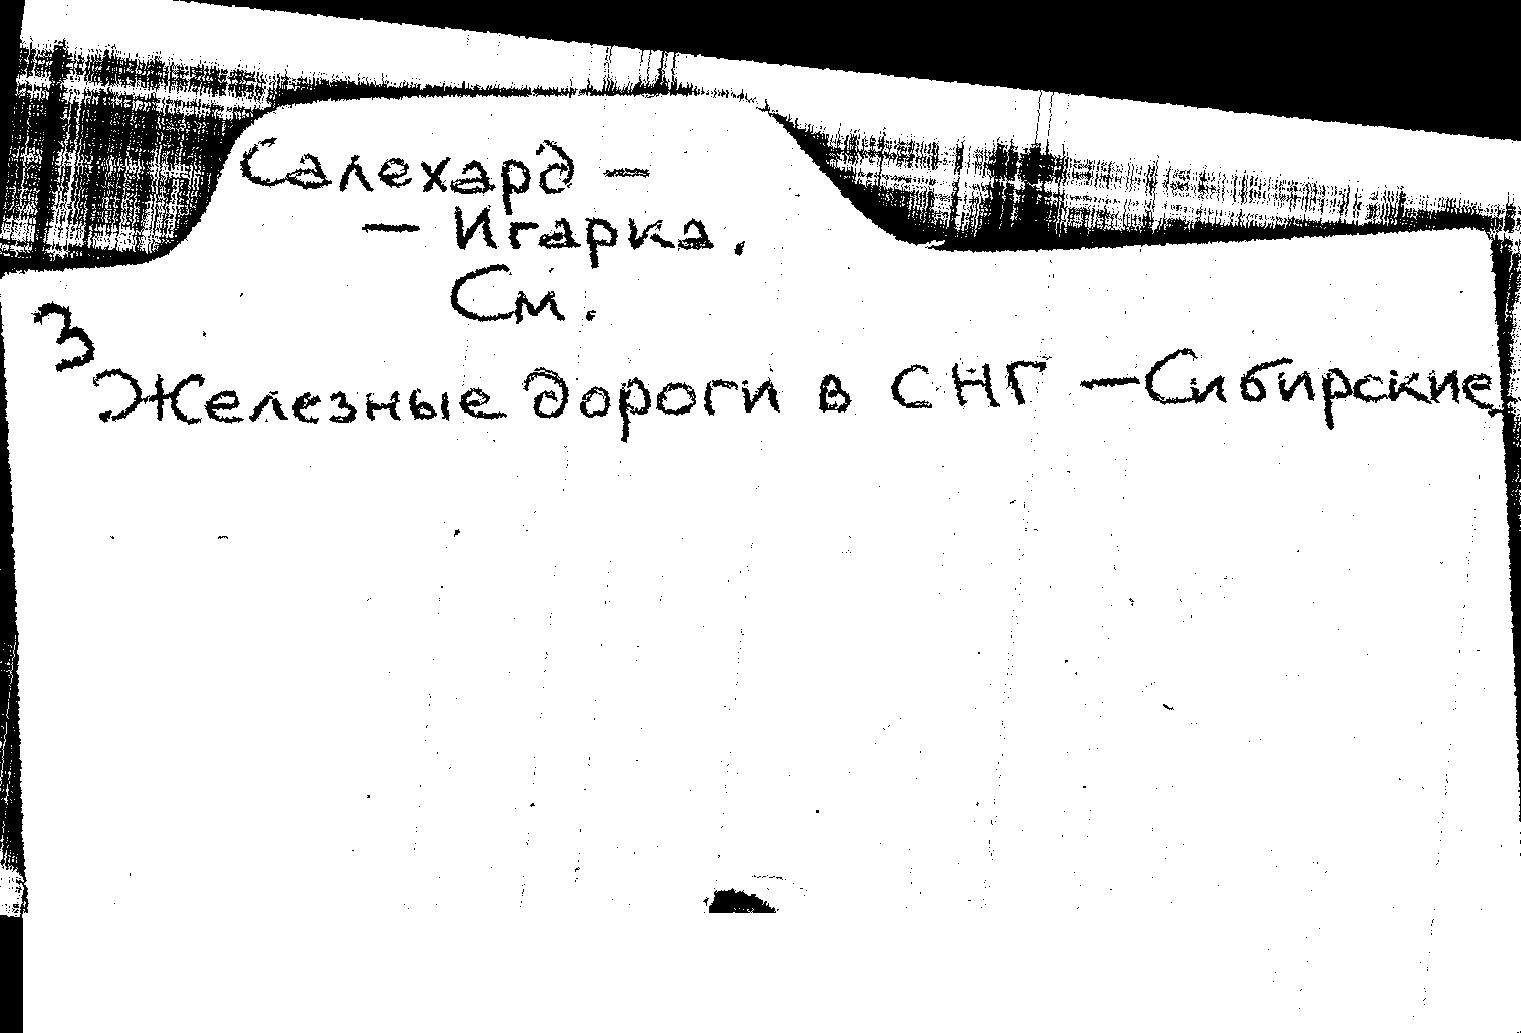 Салехард —
— Игарка.
См.
3
Железные дороги в СНГ — Сибирские.